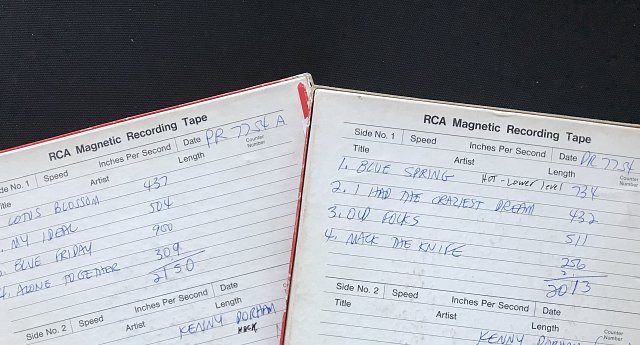 RCA Magnetic Recording Tape
Side No. 1 Speed Inches Per Second Date PR 7754 A
Title Artist Length Counter Number
LOTUS BLOSSOM 437
MY IDEAL 504
BLUE FRIDAY 900
4. ALONE TOGETHER 309
2150
Side No. 2 Speed Inches Per Second Date
Title Artist Length
KENNY DORHAM
RCA Magnetic Recording Tape
Side No. 1 Speed Inches Per Second Date PR 7754
Title Artist Length Counter Number
1. BLUE SPRING HOT - Lower level 734
2. I HAD THE CRAZIEST DREAM 432
3. OLD FOLKS 511
4. MACK THE KNIFE 256
2013
Side No. 2 Speed Inches Per Second Date
Title Artist Length Counter Number
KENNY DORHAM